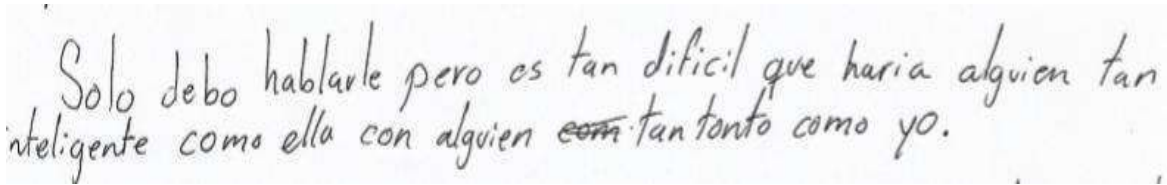 Solo debo hablarle pero es tan dificil que haria alguien tan
inteligente como ella con alguien com tan tonto como yo.